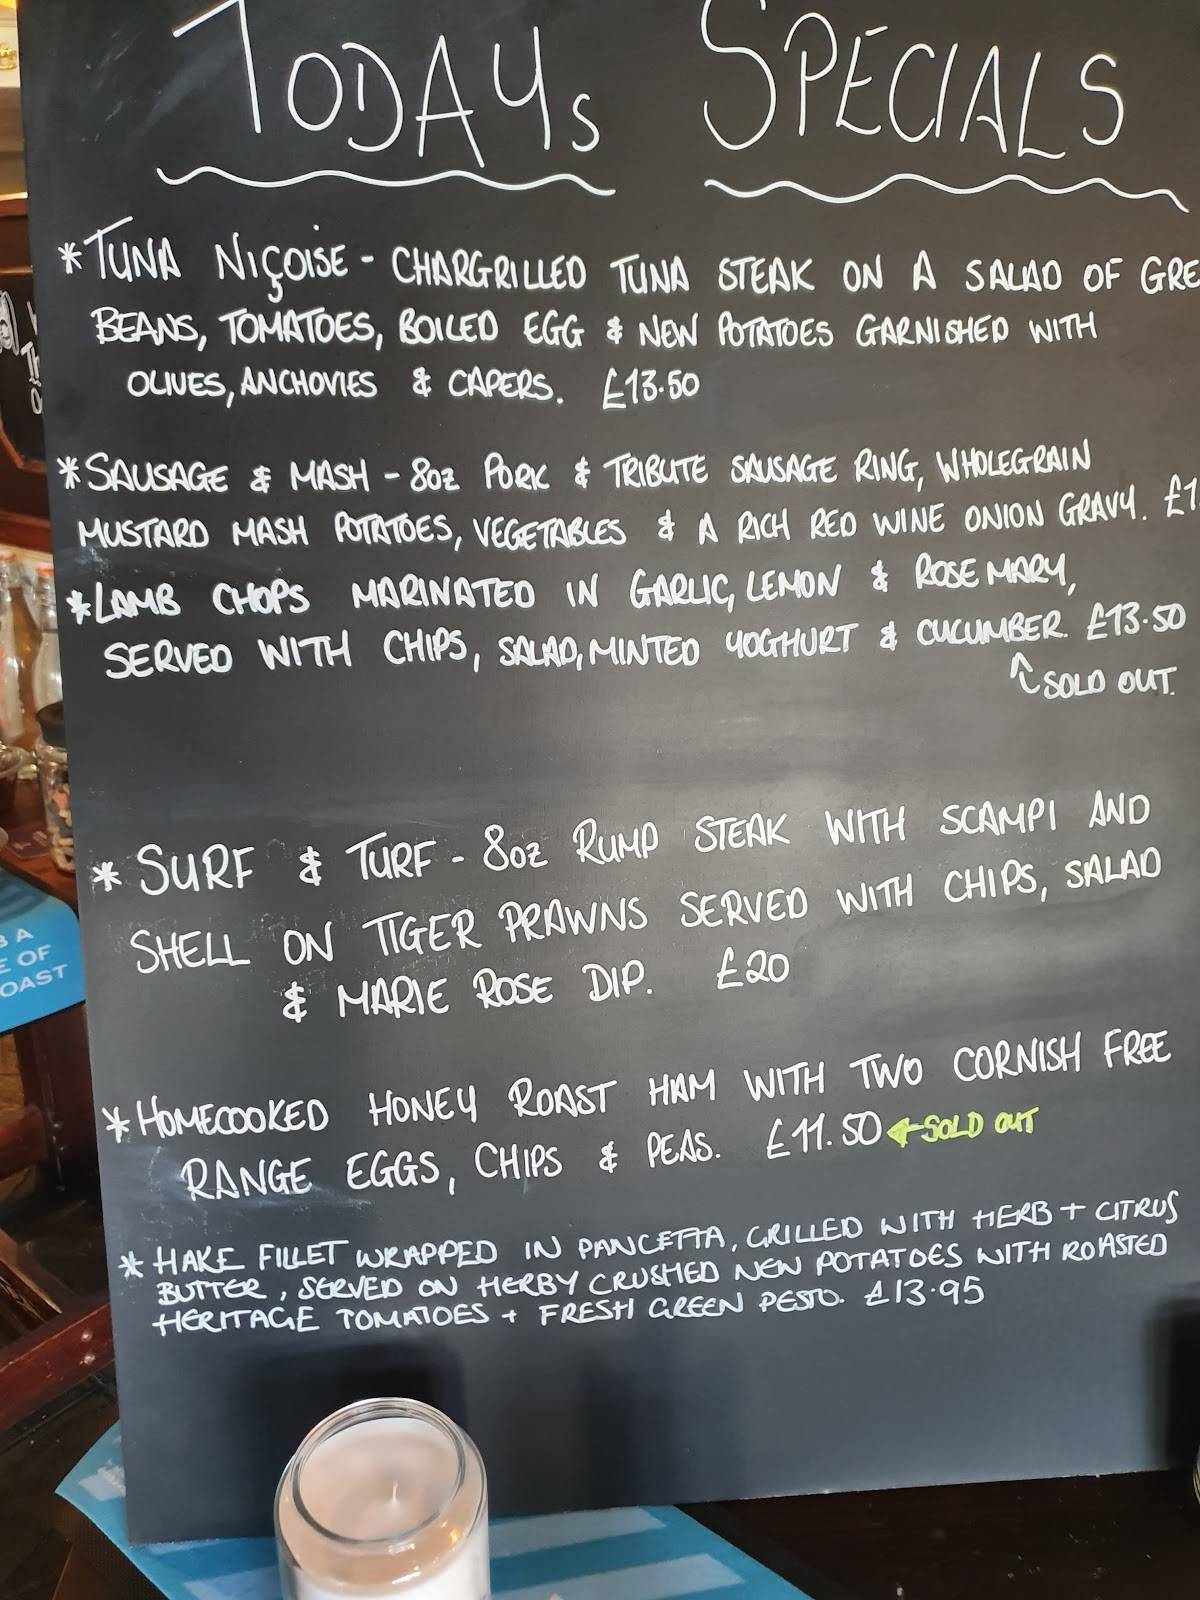 TODAYs SPECIALS
*TUNA NIÇOISE - CHARGRILLED TUNA STEAK ON A SALAD OF GRE
BEANS, TOMATOES, BOILED EGG & NEW POTATOES GARNISHED WITH
OLIVES, ANCHOVIES & CAPERS. £13.50
*SAUSAGE & MASH - 8oz PORK & TRIBUTE SAUSAGE RING, WHOLEGRAIN
MUSTARD MASH POTATOES, VEGETABLES & A RICH RED WINE ONION GRAVY. £1
*LAMB CHOPS MARINATED IN GARLIC, LEMON & ROSEMARY,
SERVED WITH CHIPS, SALAD, MINTED YOGHURT & CUCUMBER. £13.50
SOLD OUT.
* SURF & TURF - 8oz RUMP STEAK WITH SCAMPI AND
SHELL ON TIGER PRAWNS SERVED WITH CHIPS, SALAD
& MARIE ROSE DIP. £20
*HOMECOOKED HONEY ROAST HAM WITH TWO CORNISH FREE
RANGE EGGS, CHIPS & PEAS. £11.50 ←SOLD OUT
* HAKE FILLET WRAPPED IN PANCETTA, GRILLED WITH HERB + CITRUS
BUTTER, SERVED ON HERBY CRUSHED NEW POTATOES WITH ROASTED
HERITAGE TOMATOES + FRESH GREEN PESTO. £13.95
B A
E OF
OAST